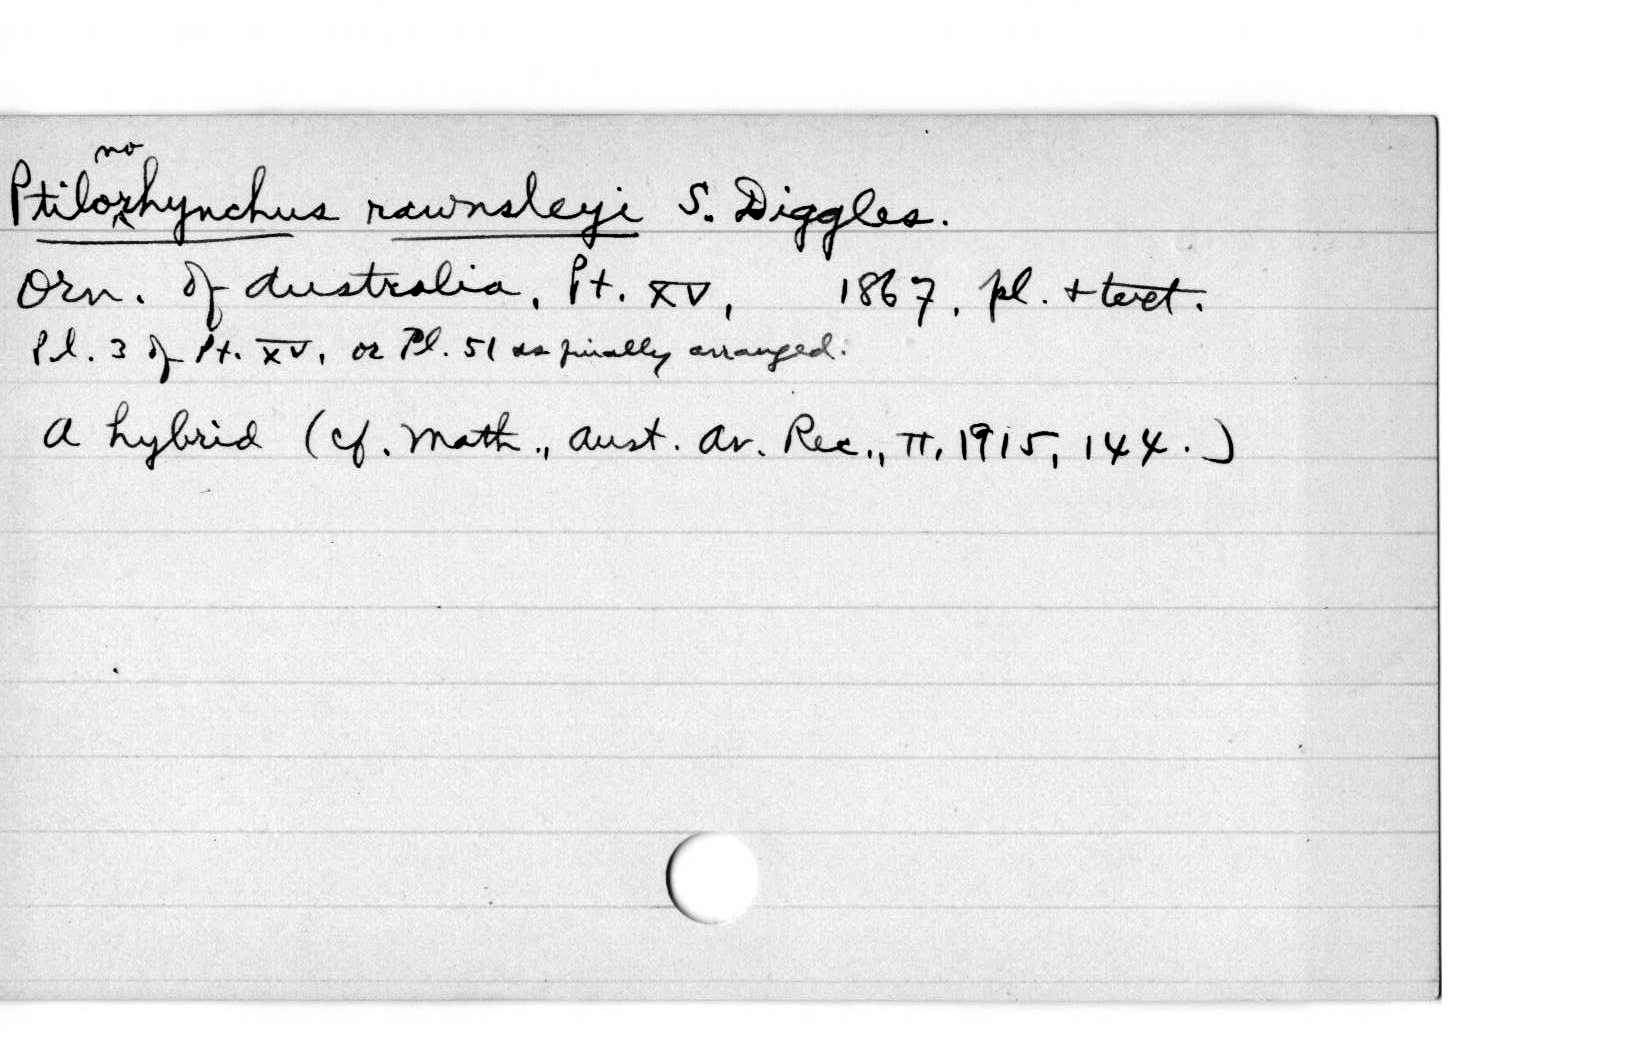 Ptilonorhynchus rawnsleyi S. Diggles.
Orn. of Australia, Pt. XV, 1867, pl. + text.
Pl. 3 of Pt. XV, or Pl. 51 as finally arranged.
A hybrid (cf. Math., Aust. Av. Rec., II, 1915, 144.)